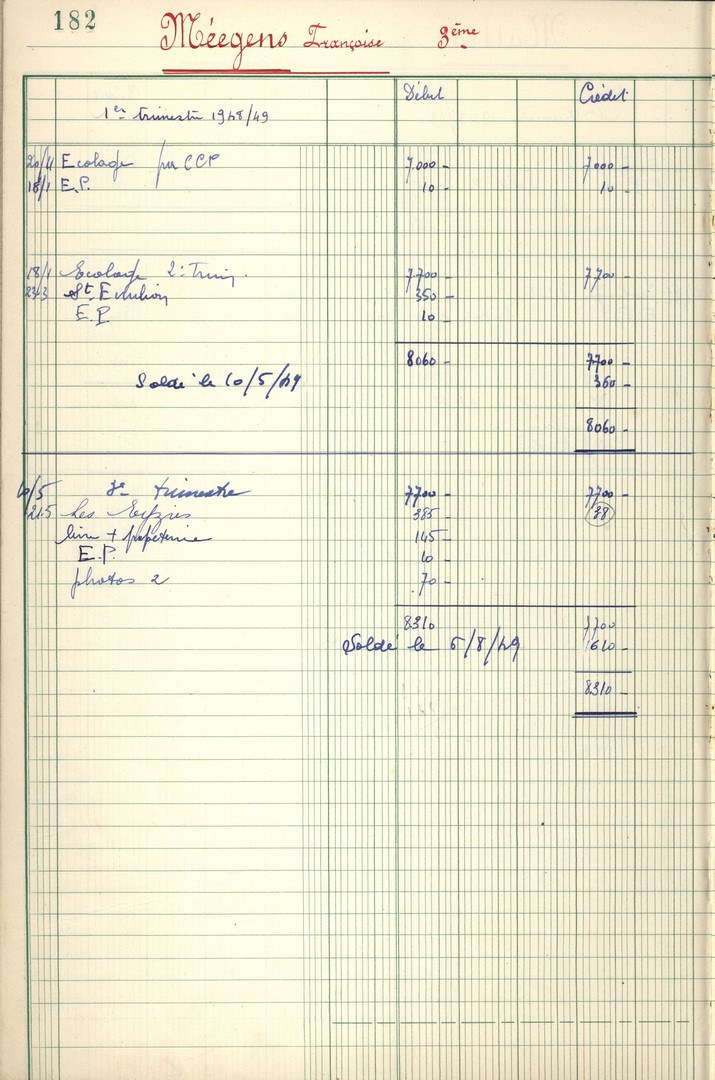 182
Méegens Françoise 3ème
Début Crédit
1er trimestre 1948/49
20/11 Ecolage par CCP 7.000 - 7000 -
18/1 E.P. 10 - 10 -
18/1 Ecolage 2e Trim. 7.700 - 7700 -
23/3 St. Emilion 350 -
E.P 10 -
8060 - 7700 -
Soldé le 10/5/49 360 -
8060 -
10/5 3e trimestre 7700 - 7700 -
21.5 Les Eyzies 385 - 38
livre + papeterie 145 -
E.P. 10 -
photos 2 70 -
8310 7700
Soldé le 5/8/49 610 -
8310 -